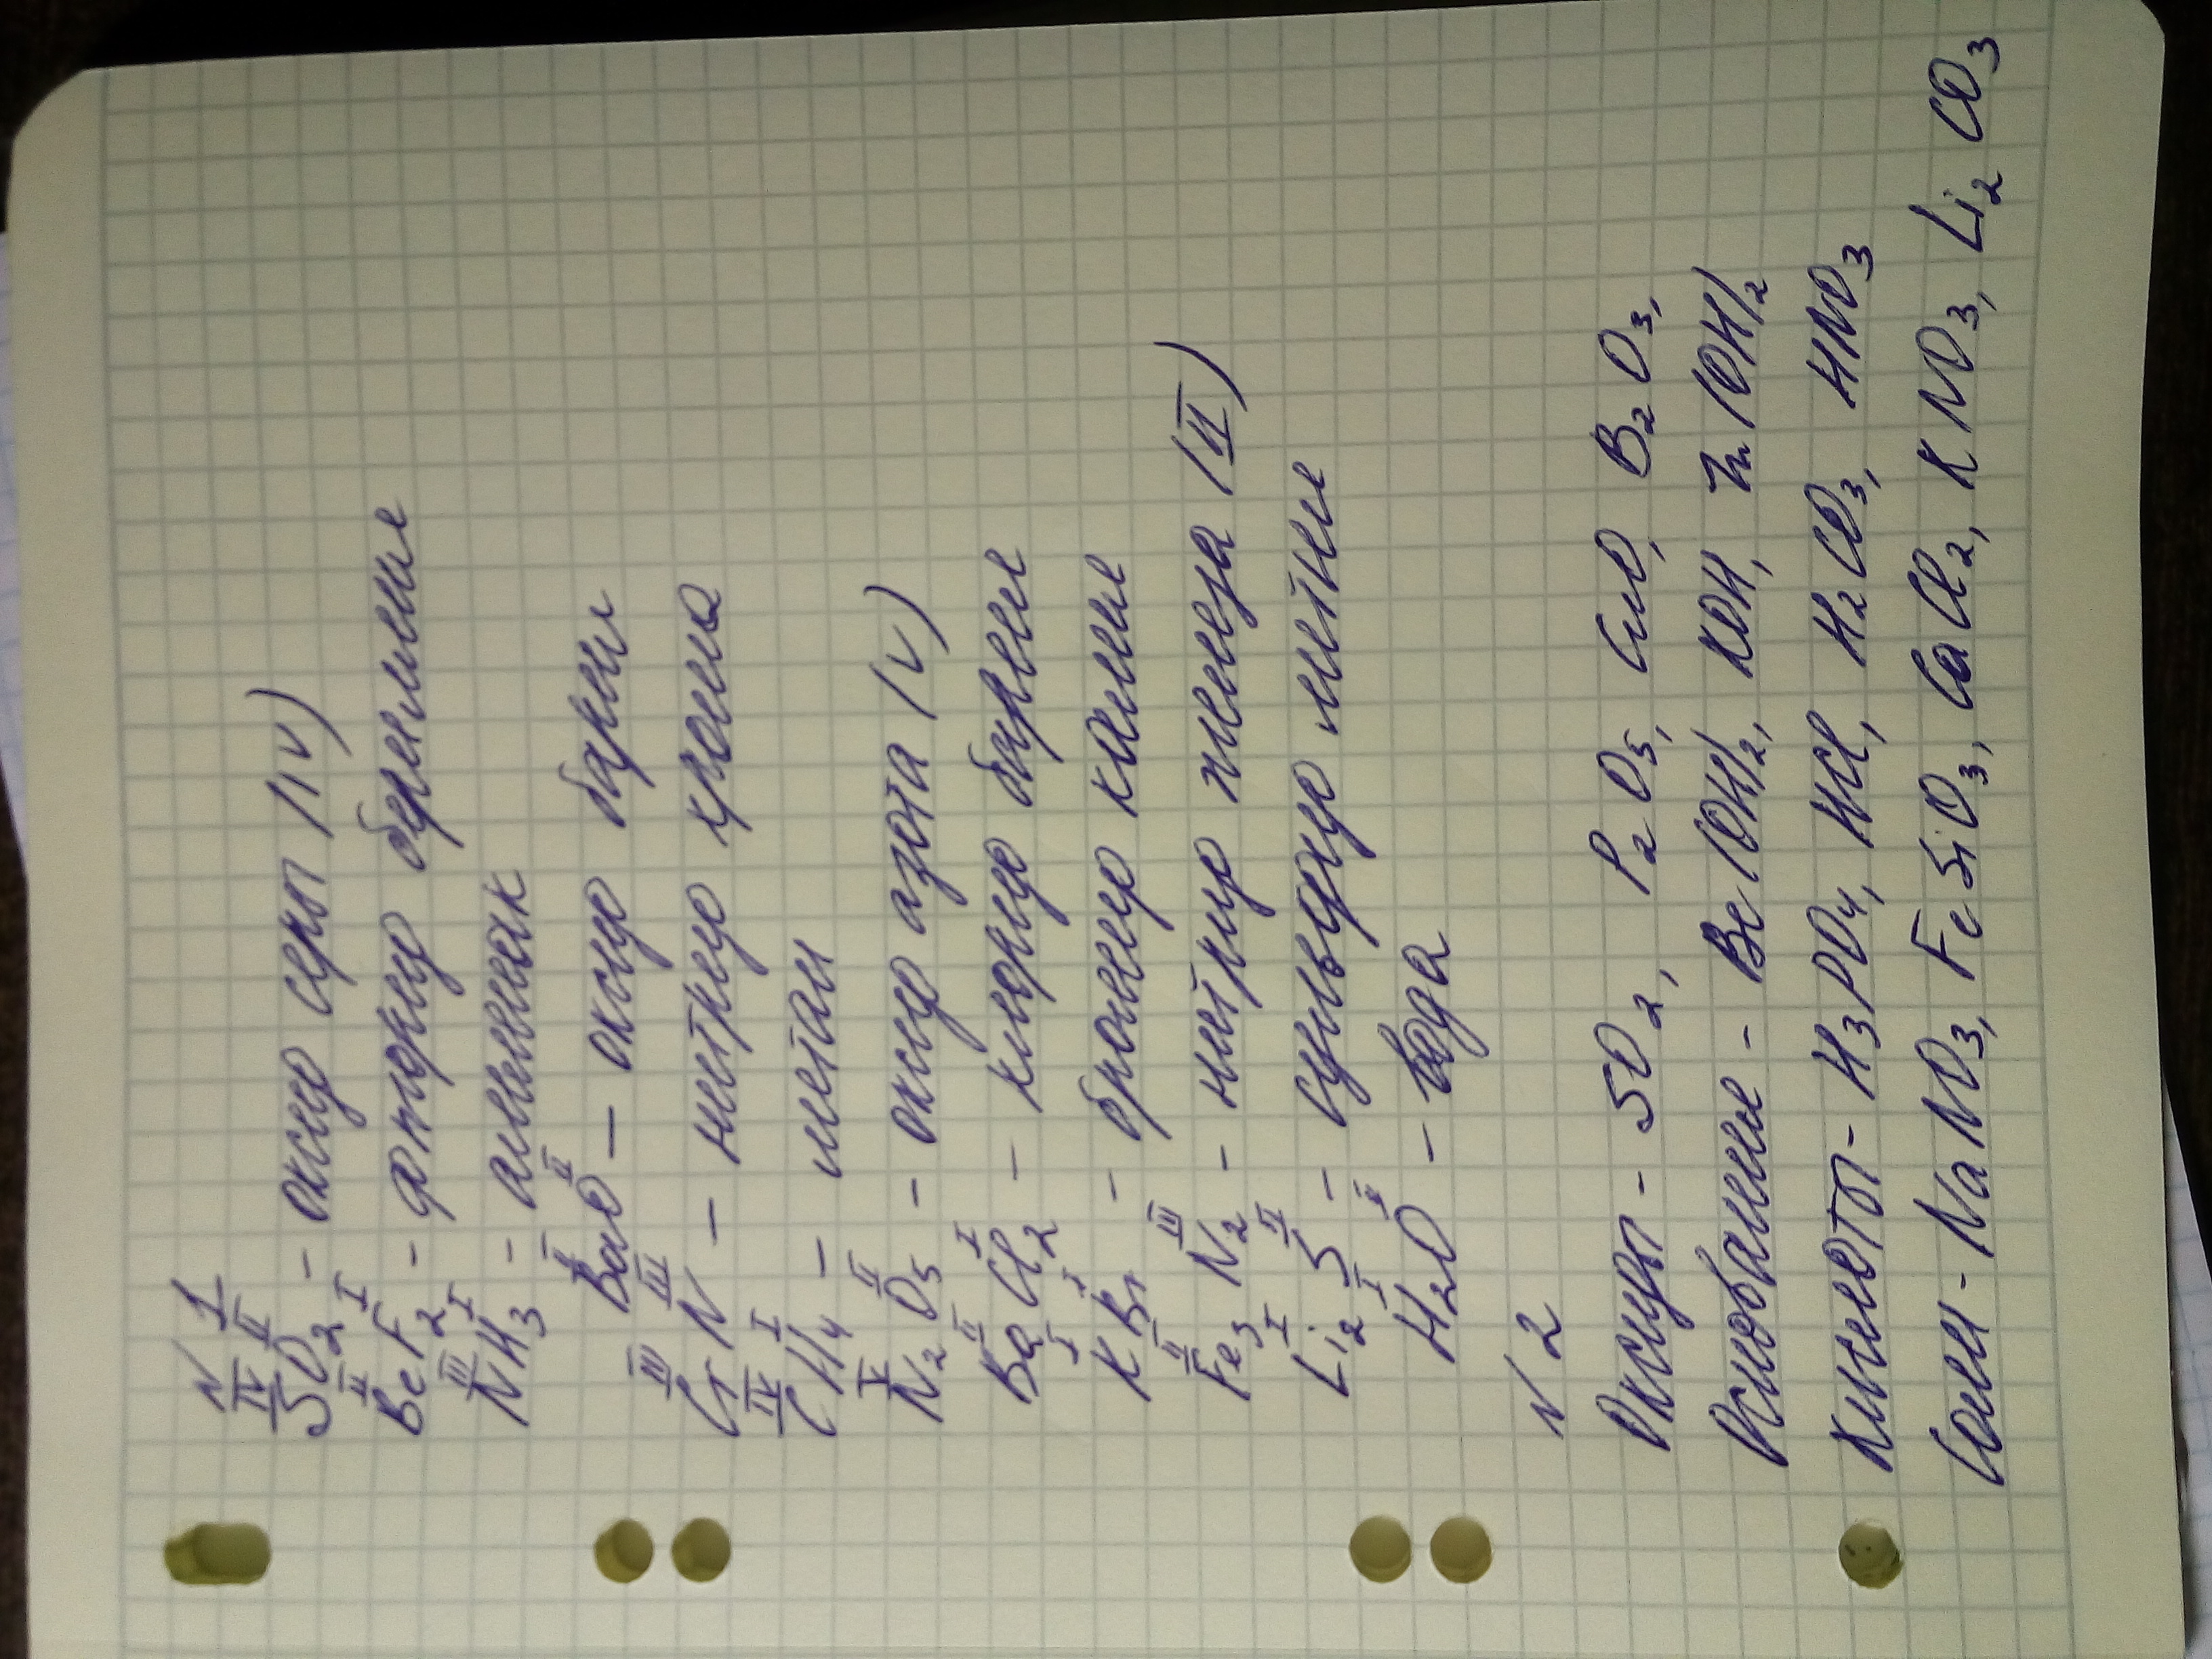 N 1
IV II
SO2 - оксид серы (IV)
II I
BeF2 - фторид бериллия
III I
NH3 - аммиак
II II
BaO - оксид бария
III III
CrN - нитрид хрома
IV I
CH4 - метан
V II
N2O5 - оксид азота (V)
II I
BaCl2 - хлорид бария
I I
KBr - бромид калия
II III
Fe3N2 - нитрид железа (II)
I II
Li2S - сульфид лития
I II
H2O - вода
N 2
Оксиды - SO2, P2O5, CuO, B2O3,
Основание - Be(OH)2, KOH, Zn(OH)2
Кислоты - H3PO4, HCl, H2CO3, HNO3
Соли - NaNO3, FeSiO3, CaCl2, KNO3, Li2CO3